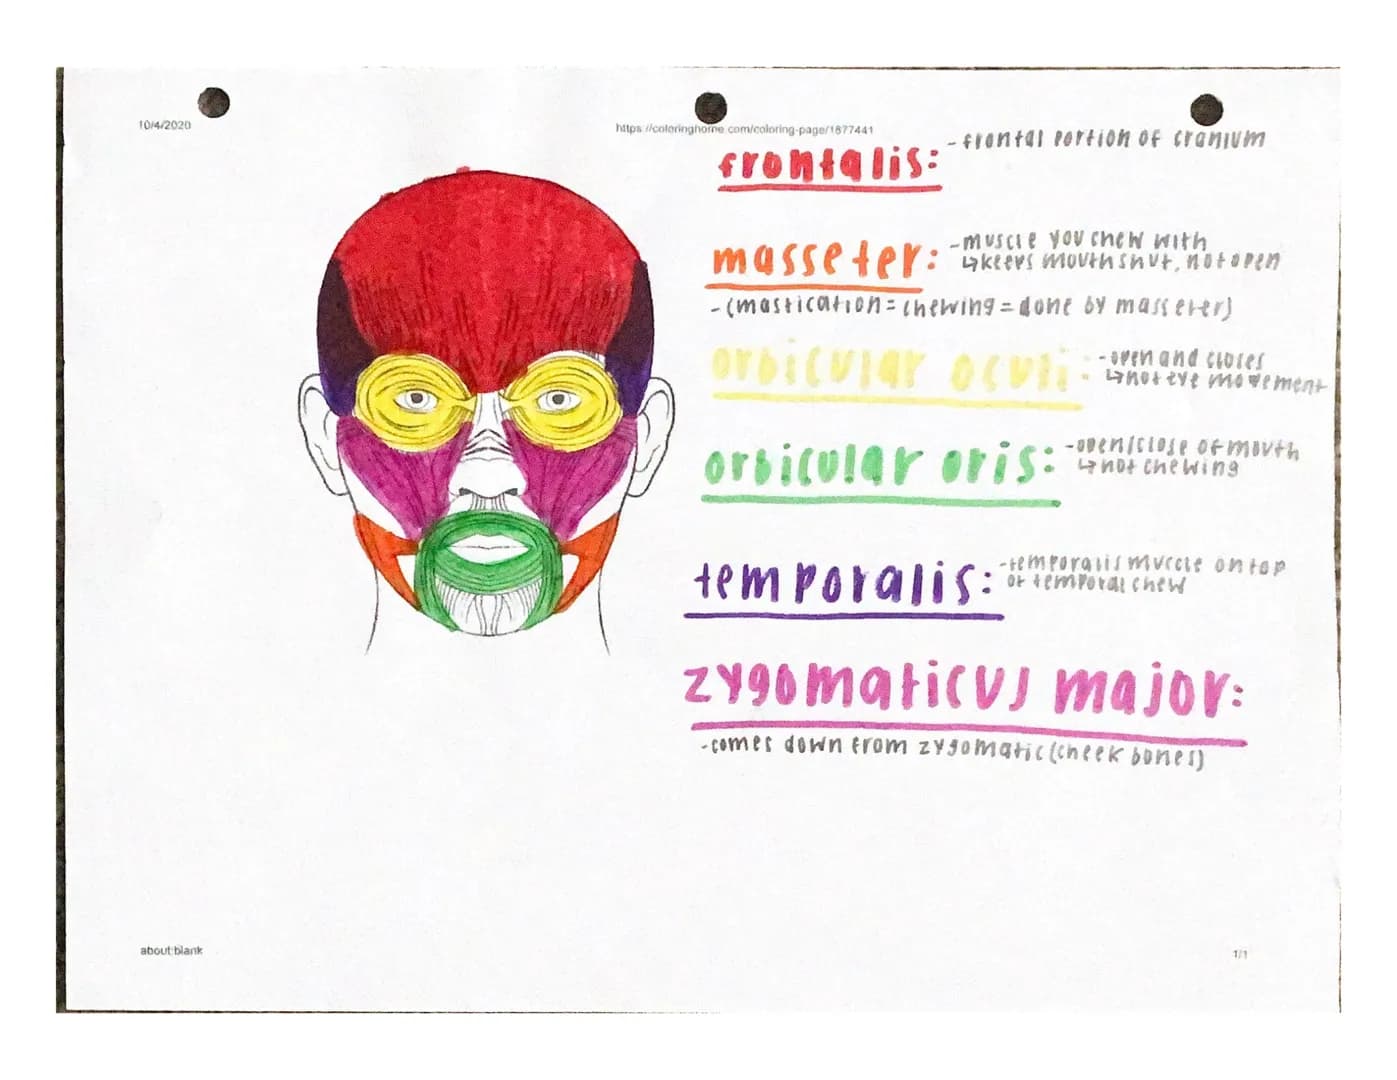 10/4/2020
https://coloringhome.com/coloring-page/1877441
frontalis: -frontal portion of cranium
masseter: -muscle you chew with
↳keeps mouth shut, not open
-(mastication = chewing = done by masseter)
orbicular oculi: -open and closes
↳not eye movement
orbicular oris: -open/close of mouth
↳not chewing
temporalis: -temporalis muscle on top
of temporal chew
zygomaticus major:
-comes down from zygomatic (cheek bones)
about:blank
1/1